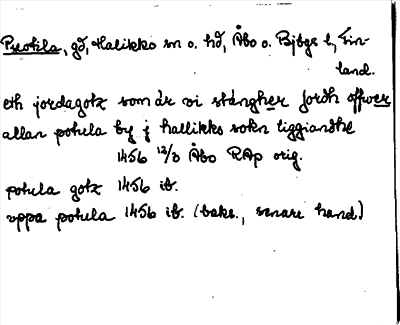 Puotila, gd, Halikko sn o. hd, Åbo o. Bjbgs l., Fin-
land.
eth jordagotz som är vi stangher jordh offwer
allan potula by j hallikko sokn liggiandhe
1456 12/3 Åbo RAp orig.
potula gotz 1456 ib.
oppa potula 1456 ib. (baks., senare hand.)